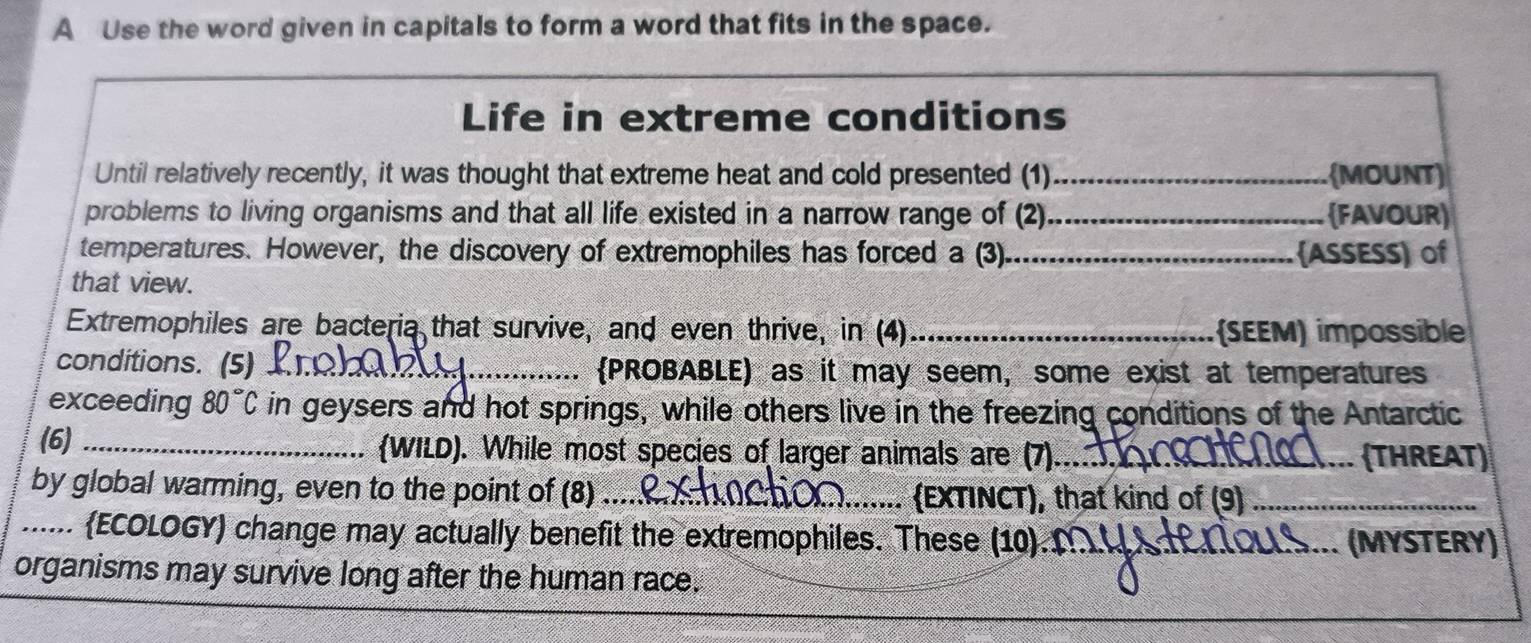 A Use the word given in capitals to form a word that fits in the space.
Life in extreme conditions
Until relatively recently, it was thought that extreme heat and cold presented (1)..............................{MOUNT)
problems to living organisms and that all life existed in a narrow range of (2)..............................{FAVOUR)
temperatures. However, the discovery of extremophiles has forced a (3)..............................{ASSESS) of
that view.
Extremophiles are bacteria that survive, and even thrive, in (4)..............................{SEEM) impossible
conditions. (5) Probably.............. {PROBABLE) as it may seem, some exist at temperatures
exceeding 80°C in geysers and hot springs, while others live in the freezing conditions of the Antarctic
(6) .............................. {WILD). While most species of larger animals are (7)....threatened.... {THREAT)
by global warming, even to the point of (8) .....extinction....... {EXTINCT), that kind of (9) ..............................
...... {ECOLOGY) change may actually benefit the extremophiles. These (10)..mysterious.... (MYSTERY)
organisms may survive long after the human race.